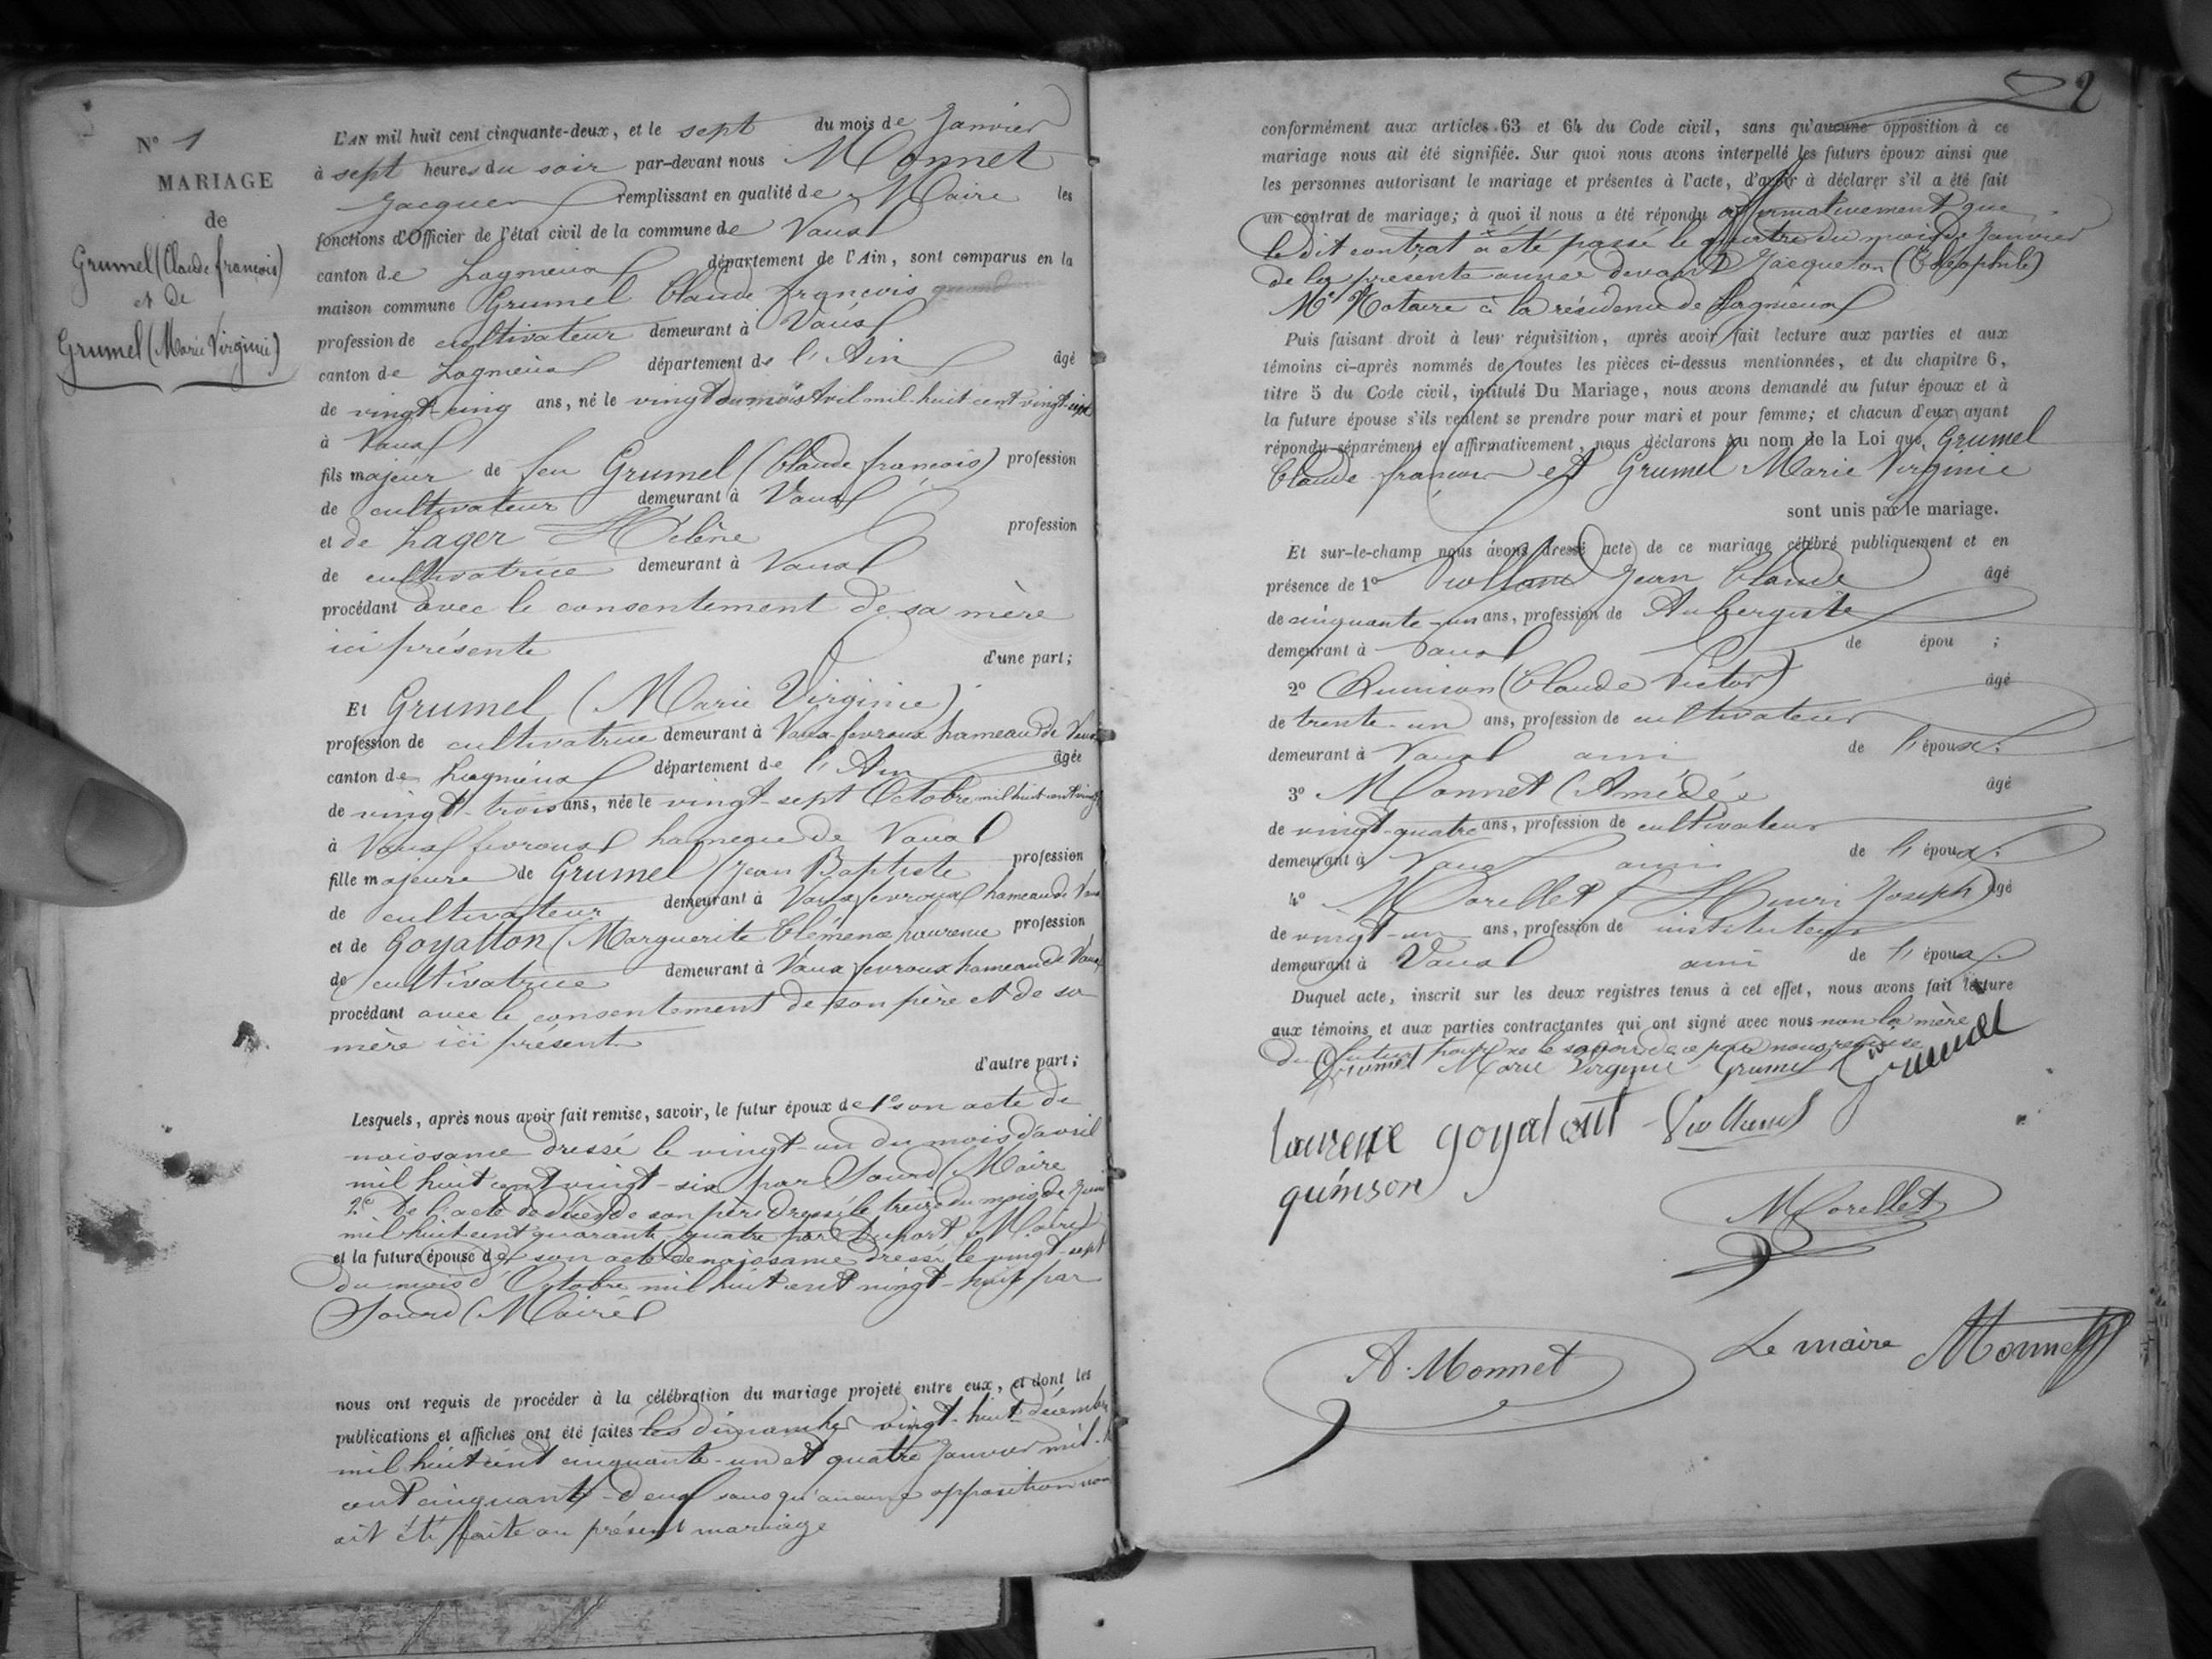 N° 1
MARIAGE
de
Grumel (Claude francois)
et de
Grumel (Marie Virginie)
L'AN mil huit cent cinquante-deux, et le sept du mois de Janvier
à sept heures du soir par-devant nous Monnet
Jacques remplissant en qualité de Maire les
fonctions d'Officier de l'état civil de la commune de Vaux
canton de Lagnieux département de l'Ain, sont comparus en la
maison commune Grumel Claude françois
profession de cultivateur demeurant à Vaux
canton de Lagnieux département de l'Ain âgé
de vingt-cinq ans, né le vingt du mois Avril mil huit cent vingt-six
à Vaux
fils majeur de feu Grumel (Claude françois) profession
de cultivateur demeurant à Vaux
et de Lager Hélène profession
de cultivatrice demeurant à Vaux
procédant avec le consentement de sa mère
ici présente
d'une part;
Et Grumel (Marie Virginie)
profession de cultivatrice demeurant à Vaux-fevroux hameau de Vaux
canton de Lagnieux département de l'Ain âgée
de vingt-trois ans, née le vingt-sept Octobre mil huit cent vingt
à Vaux fevroux hameau de Vaux
fille majeure de Grumel (Jean Baptiste profession
de cultivateur demeurant à Vaux fevroux hameau de Vaux
et de Goyatton (Marguerite Clémence Laurence profession
de cultivatrice demeurant à Vaux fevroux hameau de Vaux
procédant avec le consentement de son père et de sa
mère ici présent
d'autre part;
Lesquels, après nous avoir fait remise, savoir, le futur époux de 1° son acte de
naissance dressé le vingt-un du mois d'avril
mil huit cent vingt-six par Sourd (Maire
2° De l'acte de décès de son père dressé le treize du mois de Juin
mil huit cent quarante-quatre par Duport Maire
et la future épouse de son acte de naissance dressé le vingt-sept
du mois d'Octobre mil huit cent vingt-huit par
Sourd (Maire)
nous ont requis de procéder à la célébration du mariage projeté entre eux, et dont les
publications et affiches ont été faites les dimanches vingt-huit décembre
mil huit cent cinquante-un et quatre Janvier mil
cent cinquante-deux sans qu'aucune opposition
ait été faite au présent mariage
2
conformément aux articles 63 et 64 du Code civil, sans qu'aucune opposition à ce
mariage nous ait été signifiée. Sur quoi nous avons interpellé les futurs époux ainsi que
les personnes autorisant le mariage et présentes à l'acte, d'avoir à déclarer s'il a été fait
un contrat de mariage; à quoi il nous a été répondu affirmativement que
le dit contrat a été passé le quatre du mois de Janvier
de la présente année devant Jacqueton (Théophile)
Me Notaire à la résidence de Lagnieux
Puis faisant droit à leur réquisition, après avoir fait lecture aux parties et aux
témoins ci-après nommés de toutes les pièces ci-dessus mentionnées, et du chapitre 6,
titre 5 du Code civil, intitulé Du Mariage, nous avons demandé au futur époux et à
la future épouse s'ils veulent se prendre pour mari et pour femme; et chacun d'eux ayant
répondu séparément et affirmativement, nous déclarons au nom de la Loi que Grumel
Claude françois et Grumel Marie Virginie
sont unis par le mariage.
Et sur-le-champ nous avons dressé acte de ce mariage célébré publiquement et en
présence de 1° Jean Claude âgé
de cinquante-un ans, profession de Aubergiste
demeurant à Vaux de épou ;
2° Quinson (Claude Victor) âgé
de trente-un ans, profession de cultivateur
demeurant à Vaux ami de l'époux.
3° Monnet (Amédée âgé
de vingt-quatre ans, profession de cultivateur
demeurant à Vaux ami de l'époux.
4° Morellet (Henri Joseph) âgé
de vingt-un ans, profession de instituteur
demeurant à Vaux ami de l'époux.
Duquel acte, inscrit sur les deux registres tenus à cet effet, nous avons fait lecture
aux témoins et aux parties contractantes qui ont signé avec nous non la mère
du futur pour ne le savoir de ce par nous requise
Grumel Marie Virginie Grumel Grumel
laurence goyatont
quinson
Morellet
A. Monnet
Le maire Monnet